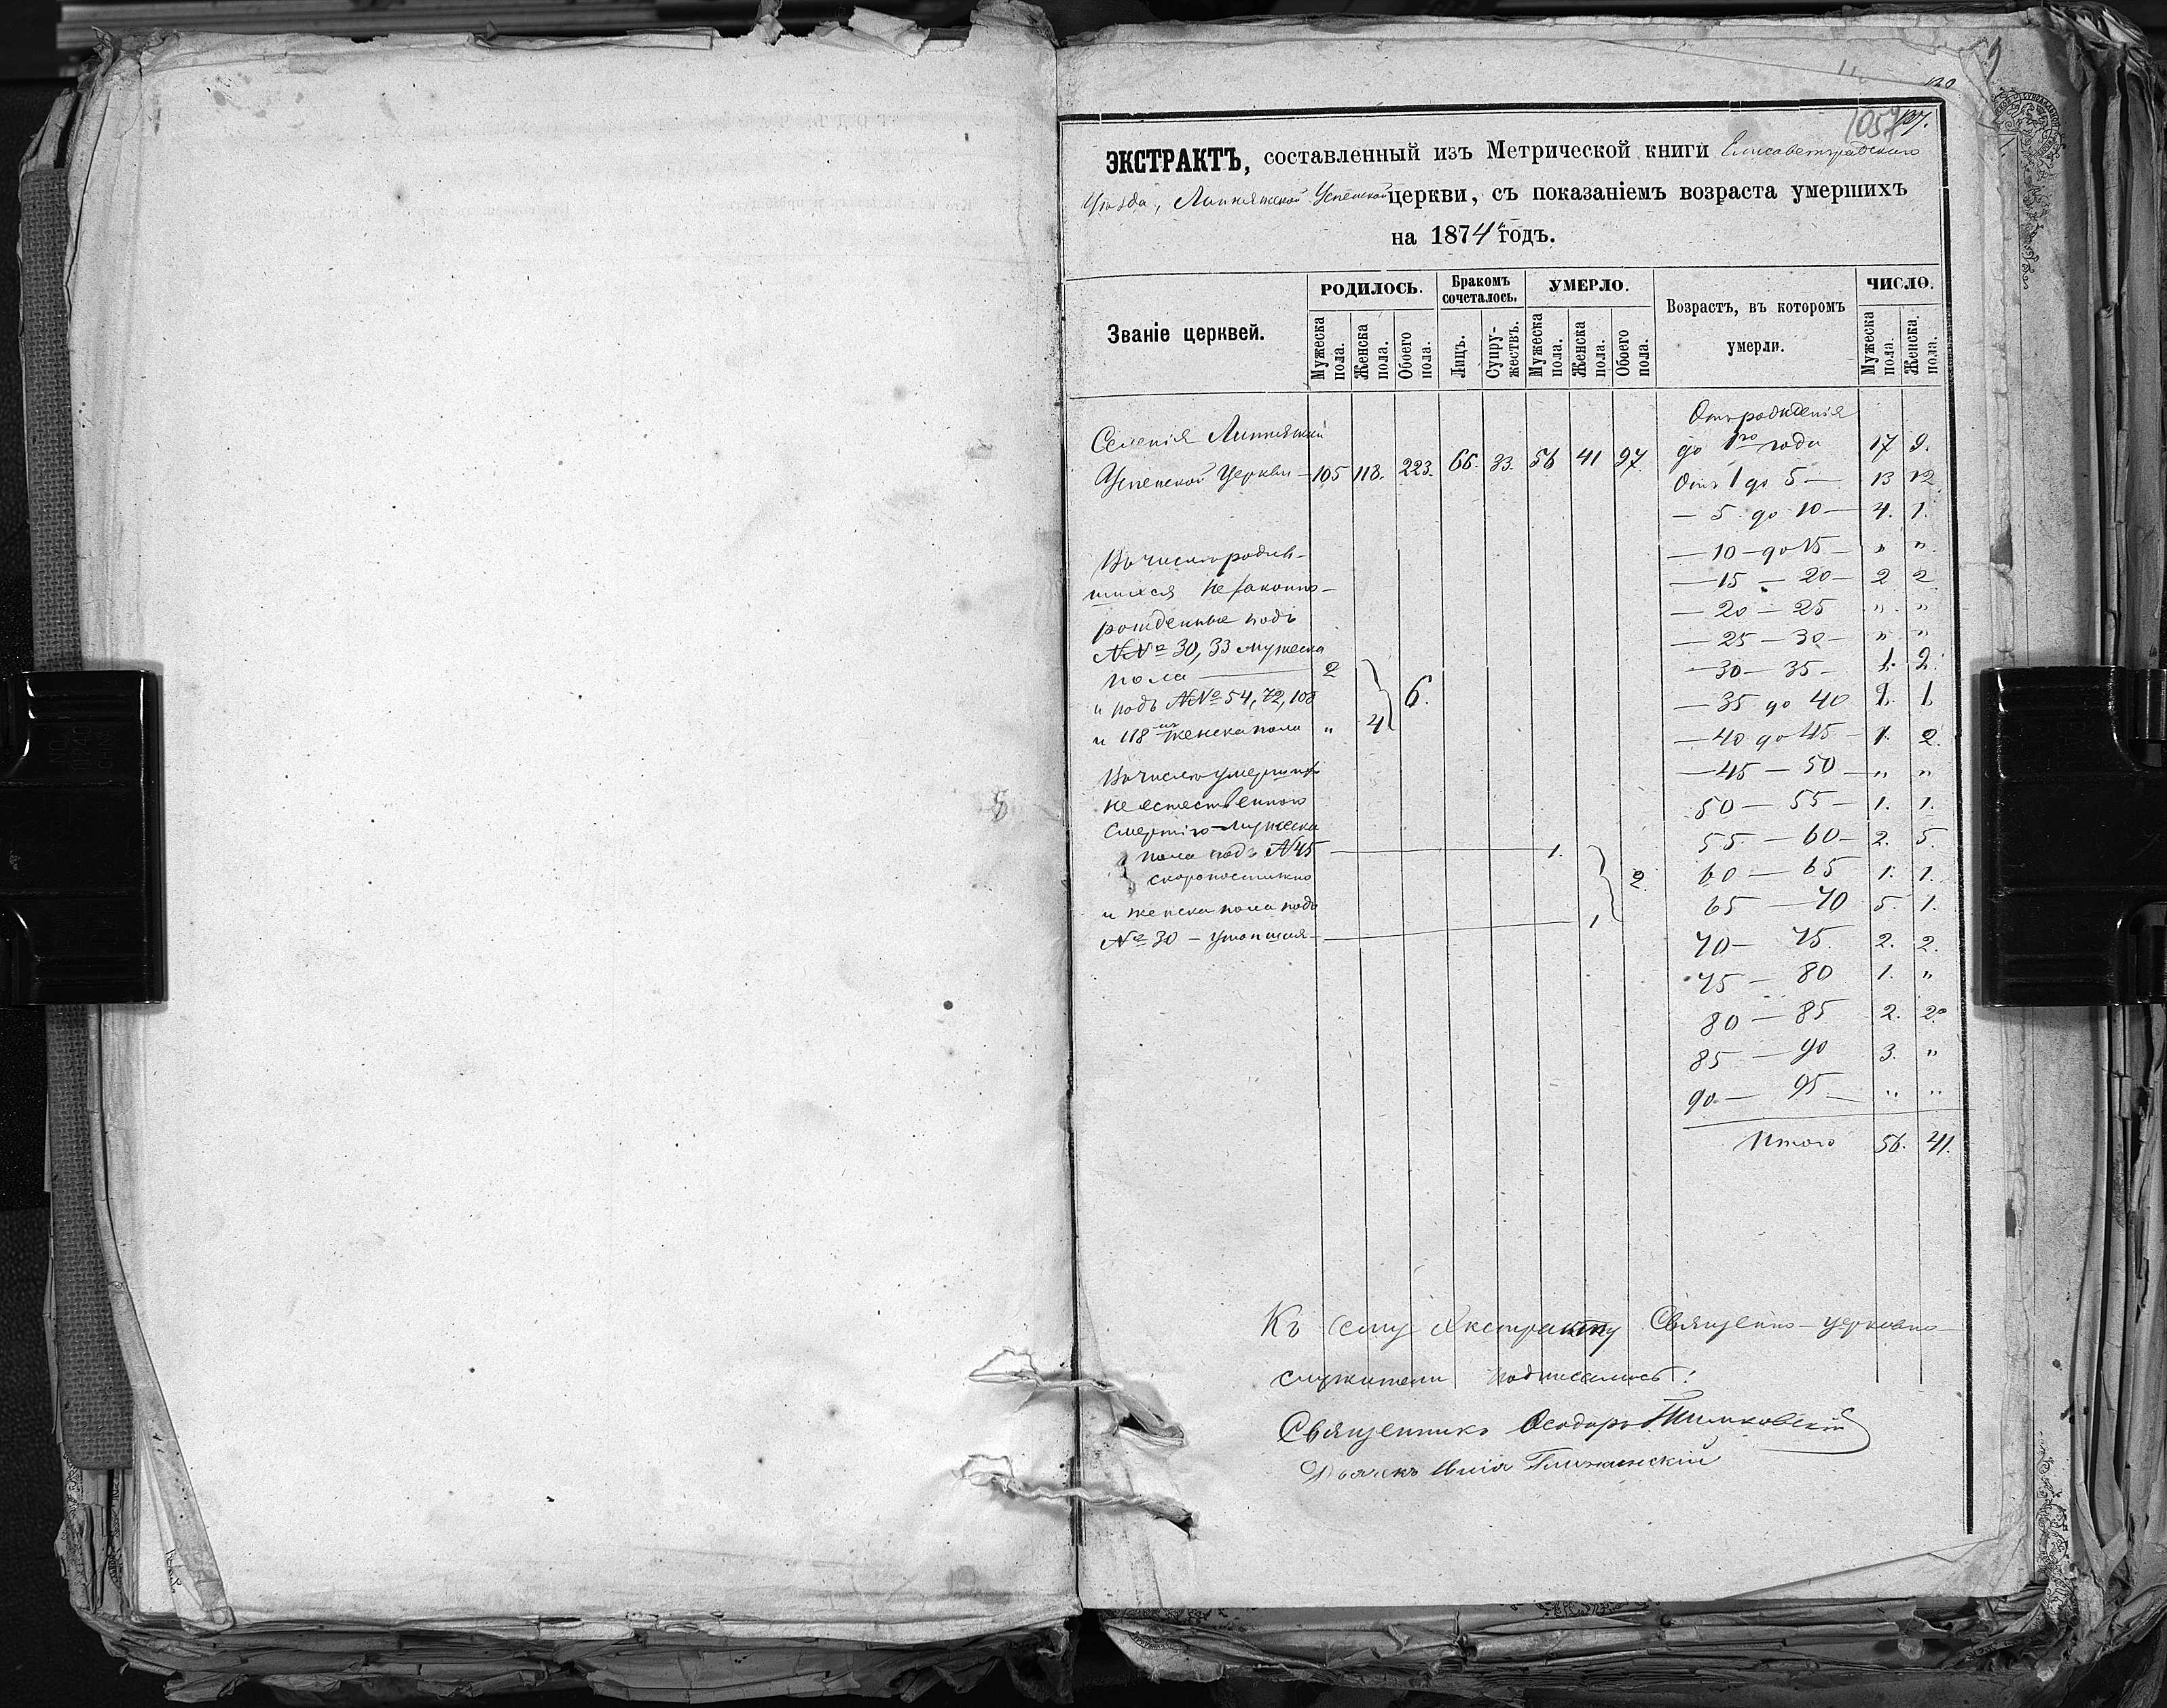 120
1057
137.
ЭКСТРАКТЪ, составленный изъ Метрической книги Елисаветградскаго
Уѣзда, Липняжской Успенской церкви, съ показаніемъ возраста умершихъ
на 1874й годъ.
Званіе церквей.
РОДИЛОСЬ.
Мужеска пола.
Женска пола.
Обоего пола.
Бракомъ сочеталось.
Лицъ.
Супружествъ.
УМЕРЛО.
Мужеска пола.
Женска пола.
Обоего пола.
Возрастъ, въ которомъ
умерли.
ЧИСЛО.
Мужеска пола.
Женска пола.
Селенія Липняжки
Успенской Церкви — 105 118. 223. 66. 33. 56 41 97.
Отъ рожденія
до 1го года 17 9.
Отъ 1 до 5 — 13 12.
— 5 до 10 — 4. 1.
— 10 — до 15 — " "
— 15 — 20 — 2 2
— 20 — 25 " "
— 25 — 30 — " "
— 30 — 35 — 1. 2.
— 35 до 40 1. 1.
— 40 до 45 — 1. 2.
— 45 — 50 — " "
50 — 55 — 1. 1.
55 — 60 — 2. 5.
60 — 65 1. 1.
65 — 70 5. 1.
70 — 75. 2. 2.
75 — 80 1. "
80 — 85 2. 2.
85 — 90 3. "
90 — 95 — " "
Итого 56. 41.
Въ числѣ родив-
шихся незаконно-
рожденные подъ
№№ 30, 33 мужеска
пола — 2
и подъ №№ 54, 72, 108
и 118 женска пола " 4
6.
Въ числѣ умершихъ
не естественною
смертію — мужеска
пола подъ № 45 — 1.
скоропостижно
2.
и женска пола подъ
№ 30 — утопшая — 1
Къ сему Экстракту Священно-церковно-
служители подписались:
Священникъ Ѳеодоръ
Дьячекъ